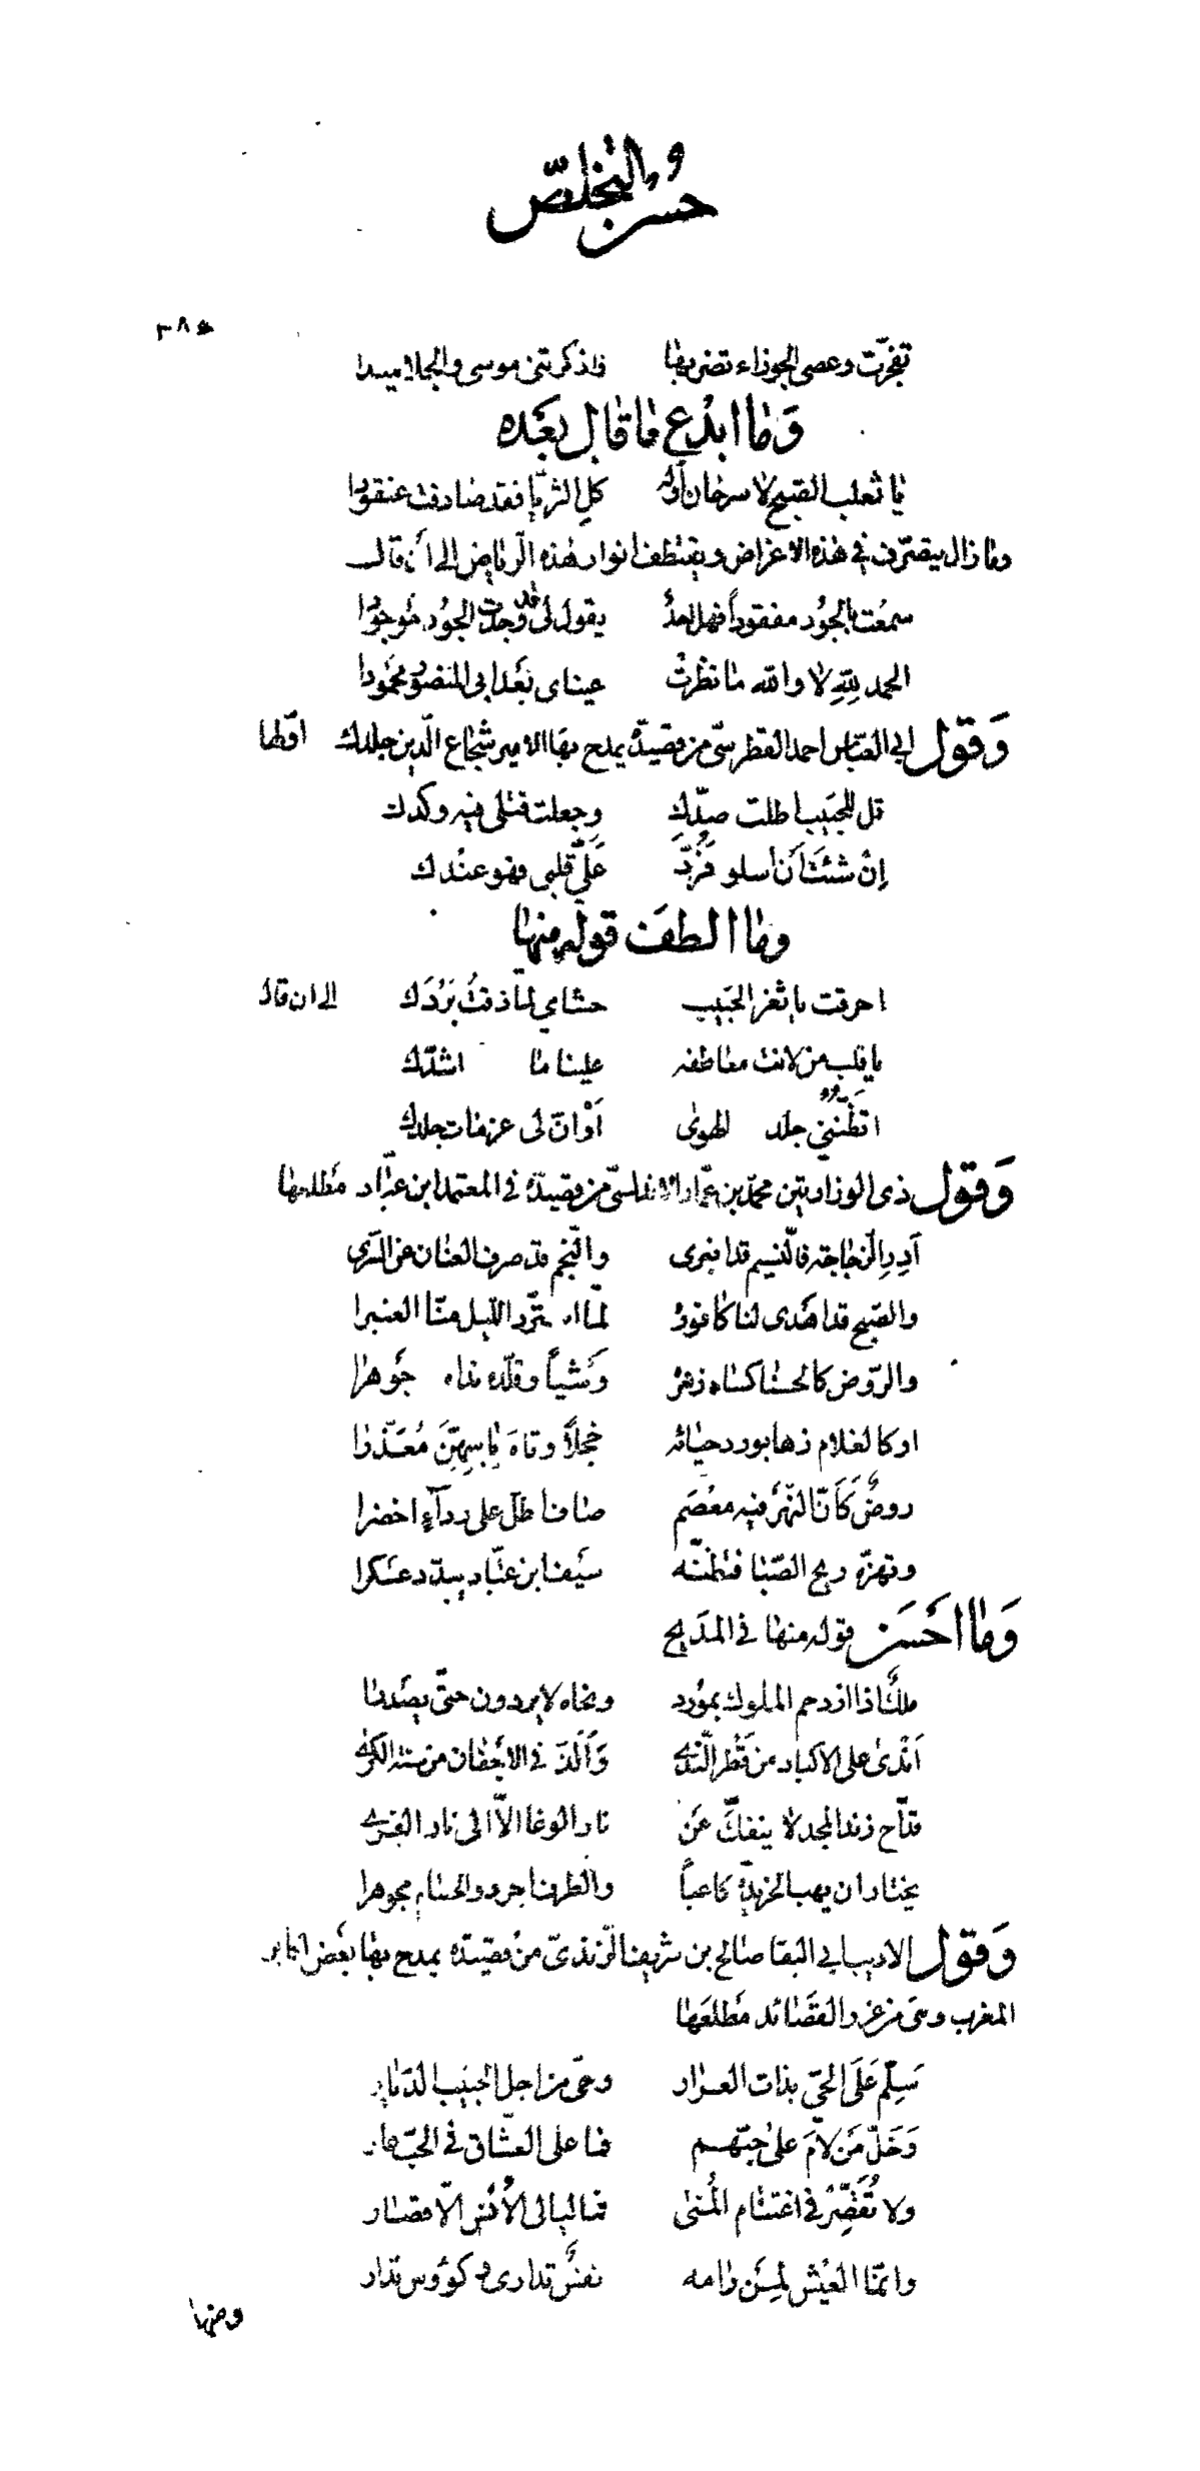 وحسن التخلص
٣٨٥
تفجّرت وعصى الجوزاء تضربها فاذكرتنى موسى والجلاميدا
وَما ابدع ما قال بعَده
يا ثعلب الصّبح لا سرحان اوّله كل الثريّا فقد صادفت عنقودا
وما زال يتصرّف في هذه الاغراض ويقتطف انوار هذه الرياض الى أن قال
سمعْت بالجوُد مفقوداً فهل احدٌ يقول لى قد وجدت الجوُد موجوُدا
الحمد لِلّهِ لا والله ما نظرتْ عيناى بَعد ابى المنصور محمُودا
وَقول ابي العبّاس احمد القطرسىّ من قصيدة يمدح بها الامير شجاع الدّين جلدك اوّلها
قل للحَبيب اطلت صدّك وجعلت قتلى فيه وكدك
إنْ شئتَ أن اسلو فَرُدّ عَلَىّ قلبى فهو عنْدك
وما الطفَ قوله منها
احرقت يا ثغر الحَبيب حشاي لمّا ذقتُ بَرْدَك الى ان قال
يا قلب من لانت معاطفه علينا ما اشدّك
اتظنّني جلد الهوى أوْ انّ لى عزمات جلدك
وَقول ذى الوزارتين محمّد بن عمّار الاندلسىّ من قصيدة في المعتمد ابن عبّاد مَطلعها
أدِرِ الزجاجة فالنّسيم قد انبرى والنّجم قد صرف العنان عن السّرى
والصّبح قد اهَدى لنا كافورهُ لمّا استردّ اللّيل منّا العنبرا
والرّوض كالحسنا كساه زهرهُ وَشياً وقلّده نداه جَوهرا
او كالغلام زها بورد حيائه خجلاً وتاهَ بآسِهِنَّ مُعَذّرا
روضٌ كَأنّ النّهْرَ فيه معصَم صاف اطلّ على ردآءٍ اخضرا
وتهزّه ريح الصّبا فتظنّه سَيف ابن عبّاد يبدّد عَسكرا
وَما احَسَن قوله منها في المدَيح
ملكٌ اذا ازدحم الملوك بموْرد ونحاه لا يردون حتّى يصَدرا
اندْى على الاكباد من قَطْر النّدى وَأَلذّ في الاجَفان من سنة الكرى
قدّاح زند المجد لا ينفكّ عَن نار الوغا الاّ الى نار القرى
يختار ان يهب الخريدة كاعباً والطرف اجرد والحسام مجوهرا
وَقول الاديب ابي البقا صالح بن شريف الرّندىّ من قصيدة يمدح بها بعَض اكابر
المغرب وهى من غرر القصَائد مَطلعَها
سَلّم عَلَى الحَىّ بذات العرار وحىّ من اجل الحبيب الديار
وَخَلّ مَن لامَ على حُبّهم فما على العشّاق في الحبّ عار
ولا تُقَصِّرْ فى اغتنام المُنى فما ليالى الأُنس الاّ قصار
وانمّا العيْش لمِنَ رامه نفسٌ تدارى وكؤوس تدار
ومنها